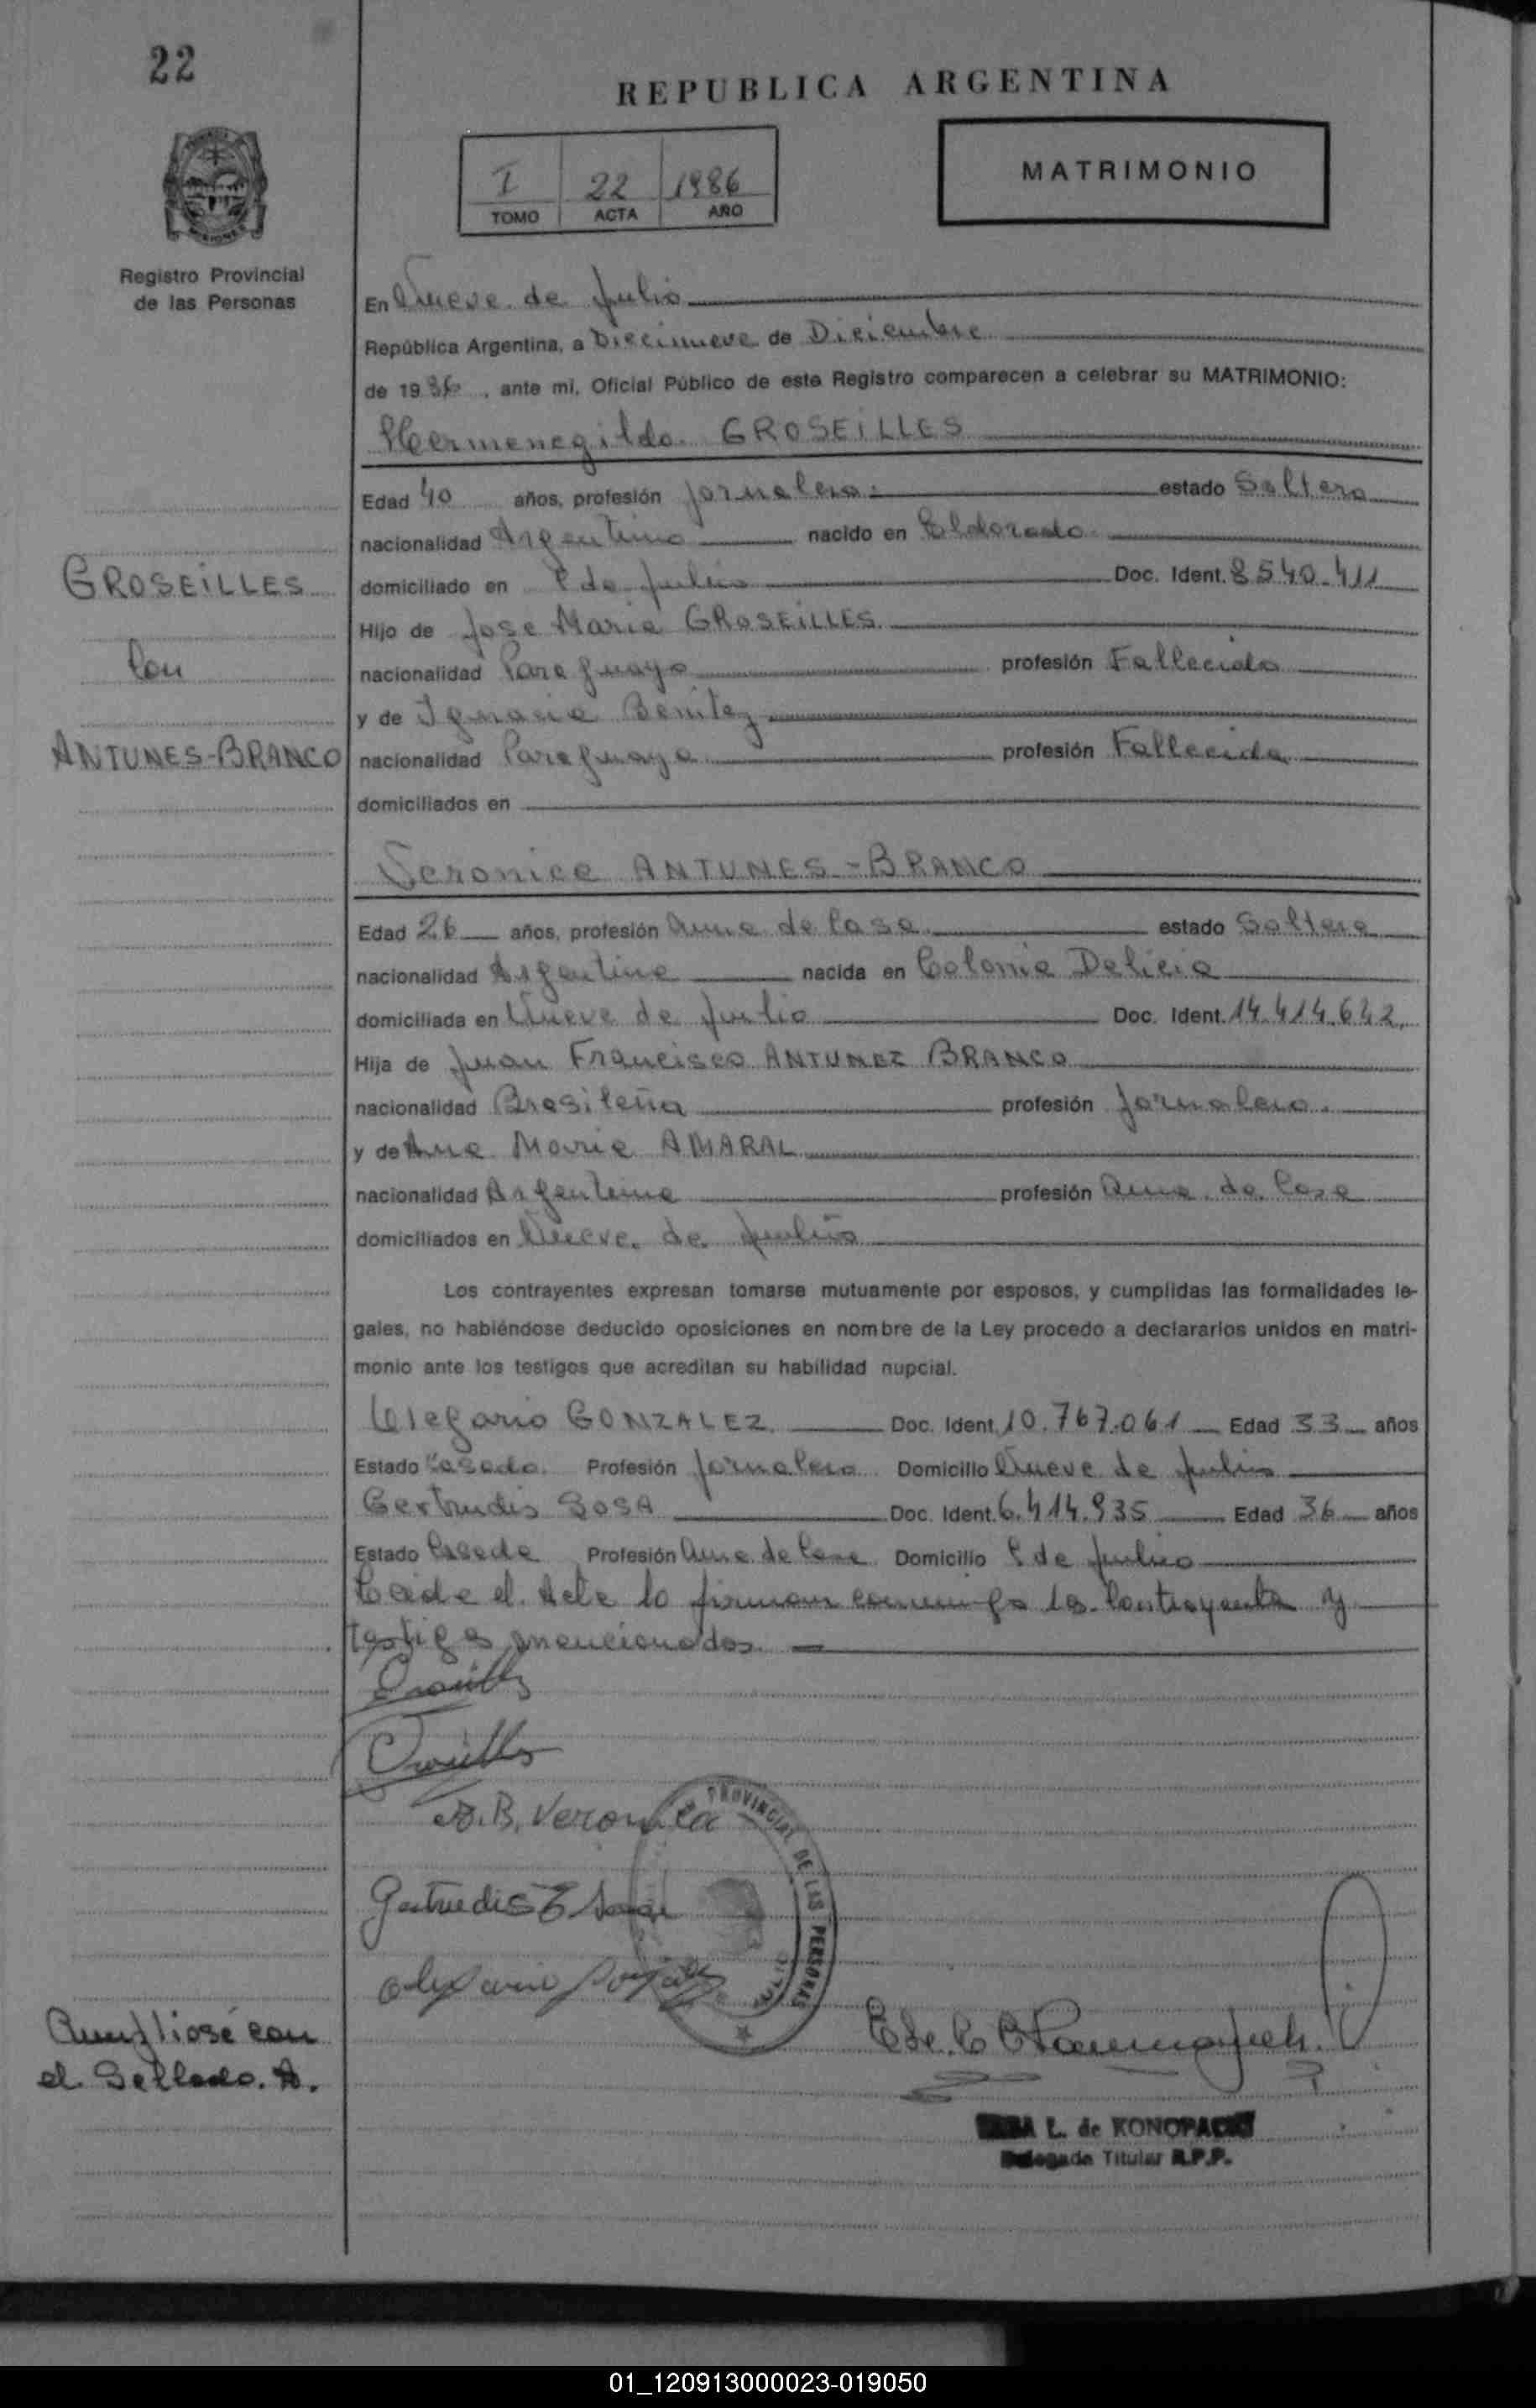 22
REPUBLICA ARGENTINA
I 22 1986
TOMO ACTA AÑO
MATRIMONIO
Registro Provincial
de las Personas
En Nueve de Julio
República Argentina, a Diecinueve de Diciembre
de 1986, ante mi, Oficial Público de este Registro comparecen a celebrar su MATRIMONIO:
Hermenegildo GROSEILLES
Edad 40 años, profesión Jornalero estado Soltero
nacionalidad Argentino nacido en Eldorado
GROSEILLES
con
ANTUNES-BRANCO
domiciliado en 9 de Julio Doc. Ident. 8540.411
Hijo de Jose Maria GROSEILLES
nacionalidad Paraguayo profesión Fallecido
y de Ignacia Benitez
nacionalidad Paraguaya profesión Fallecida
domiciliados en
Veronica ANTUNES-BRANCO
Edad 26 años, profesión Ama de Casa estado Soltera
nacionalidad Argentina nacida en Colonia Delicia
domiciliada en Nueve de Julio Doc. Ident. 14.414.642
Hija de Juan Francisco ANTUNEZ BRANCO
nacionalidad Brasileña profesión Jornalero.
y de Ana Maria AMARAL
nacionalidad Argentina profesión Ama de Casa
domiciliados en Nueve de Julio
Los contrayentes expresan tomarse mutuamente por esposos, y cumplidas las formalidades le-
gales, no habiéndose deducido oposiciones en nombre de la Ley procedo a declararlos unidos en matri-
monio ante los testigos que acreditan su habilidad nupcial.
Olegario GONZALEZ Doc. Ident. 10.767.061 Edad 33 años
Estado Casado Profesión Jornalero Domicilio Nueve de Julio
Gertrudis SOSA Doc. Ident. 6.414.935 Edad 36 años
Estado Casada Profesión Ama de Casa Domicilio 9 de Julio
el Acta lo firman conmigo los Contrayentes y
testigos mencionados.
A.B. Veronica
PROVINCIAL DE LAS PERSONAS
Gertrudis
el Sellado. A.
L. de KONOPACKI
Delegada Titular R.P.P.
01_120913000023-019050